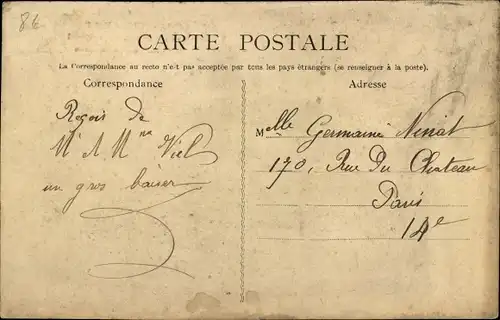 86
CARTE POSTALE
La Correspondance au recto n'est pas acceptée par tous les pays étrangers (se renseigner à la poste).
Correspondance
Adresse
Reçois de
M. & Mme Viel
un gros baiser
Melle Germaine
170, Rue Du Chateau
Paris
14e